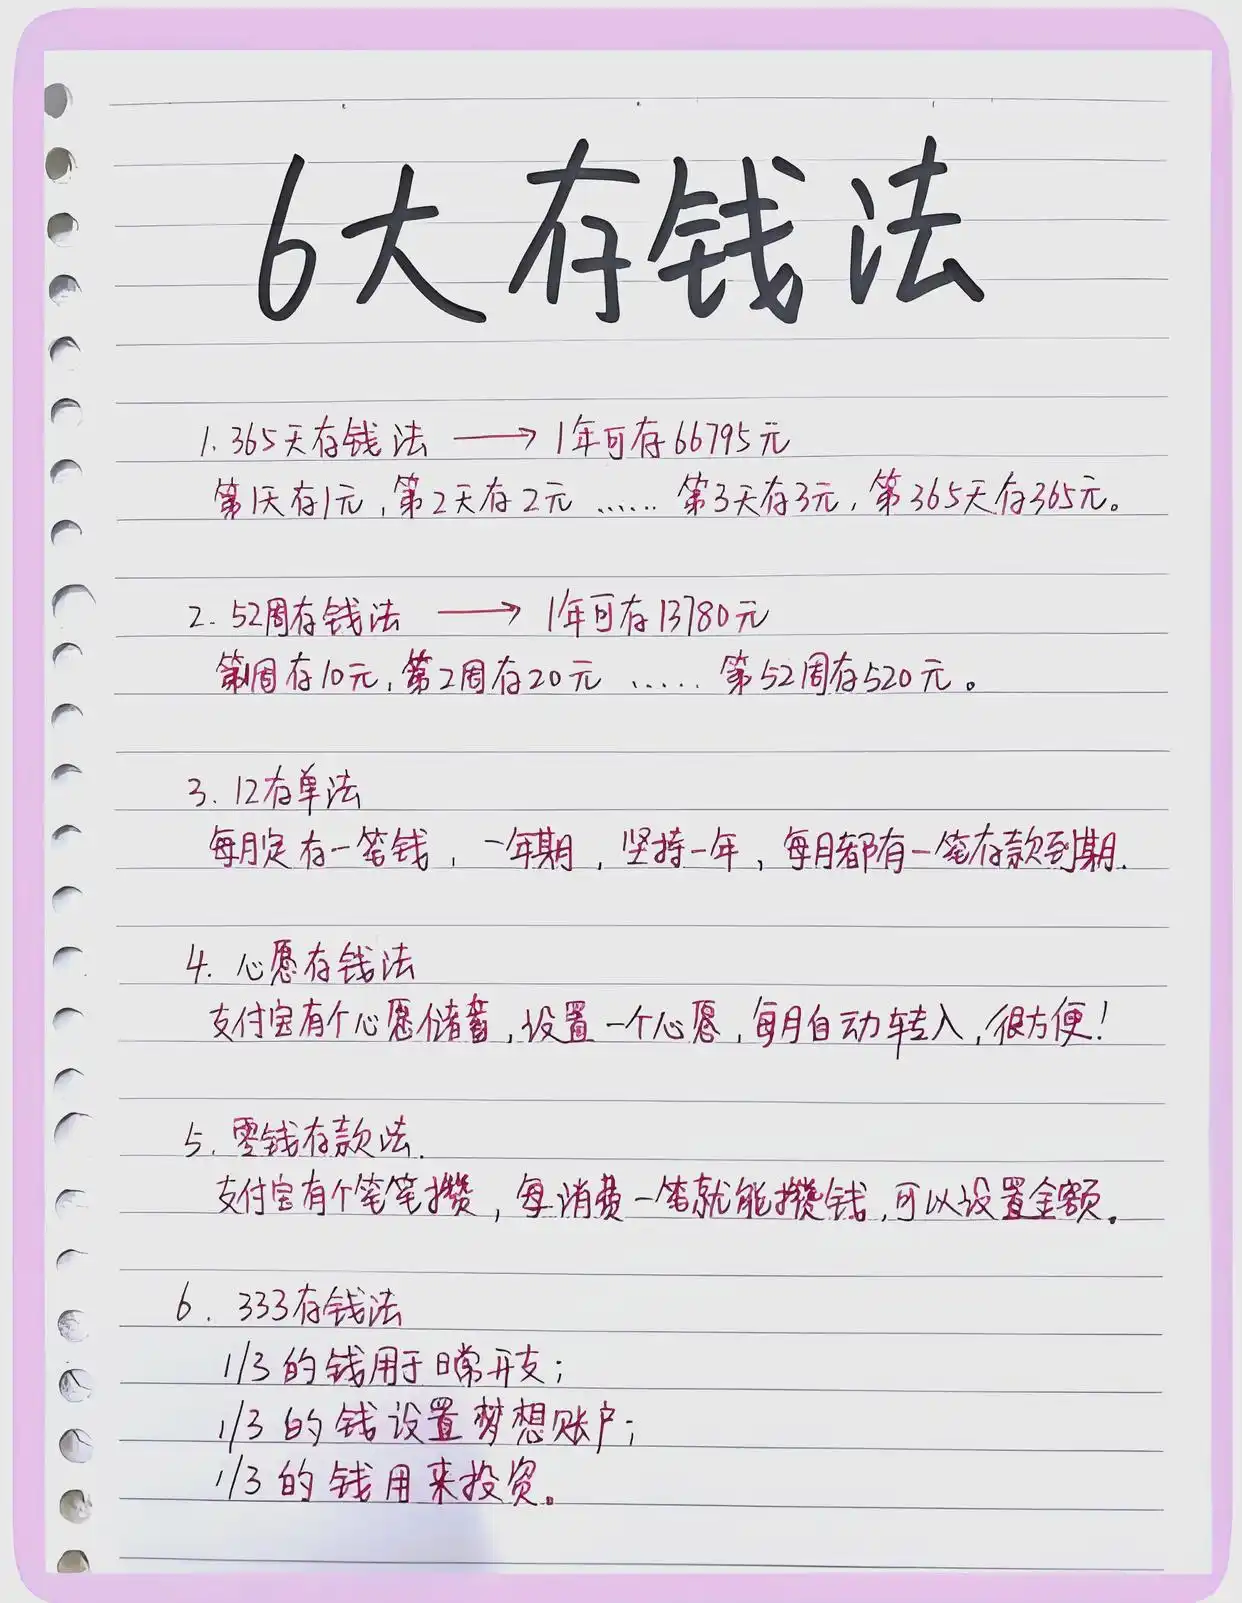 6大存钱法
1. 365天存钱法 → 1年可存66795元
第1天存1元,第2天存2元 …… 第3天存3元,第365天存365元。
2. 52周存钱法 → 1年可存13780元
第1周存10元,第2周存20元 …… 第52周存520元。
3. 12存单法
每月定存一笔钱,一年期,坚持一年,每月都有一笔存款到期.
4. 心愿存钱法
支付宝有个心愿储蓄,设置一个心愿,每月自动转入,很方便!
5. 零钱存款法.
支付宝有个笔笔攒,每消费一笔就能攒钱,可以设置金额.
6. 333存钱法
1/3的钱用于日常开支;
1/3的钱设置梦想账户;
1/3的钱用来投资。